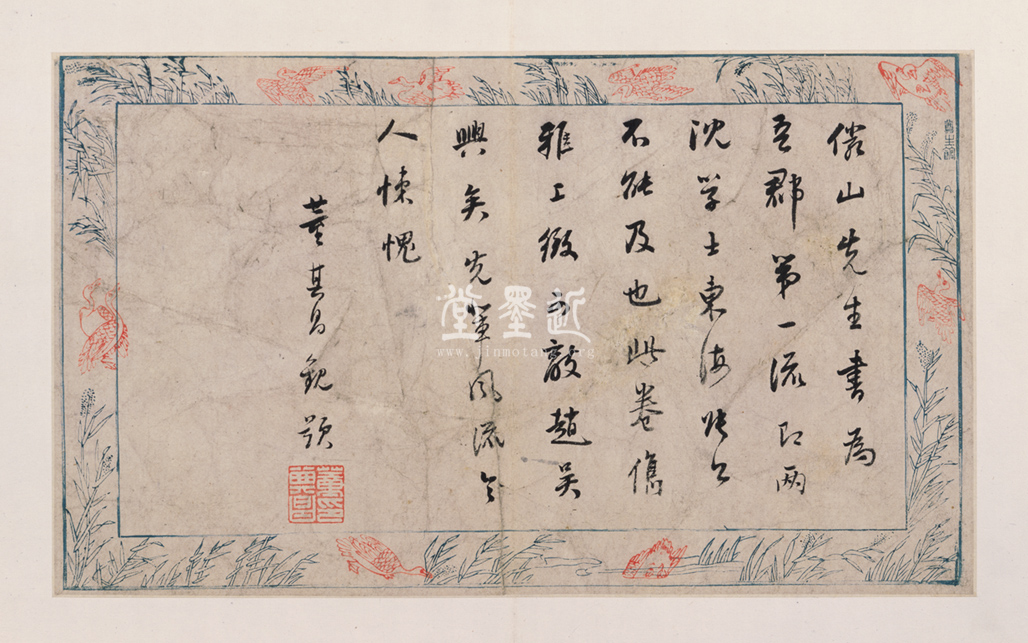 儼山先生書為
吾郡第一流即兩
沈學士東海張公
不能及也此卷儁
雅工緻可敵趙吳
興矣先輩風流令
人悚愧
董其昌觀題
董印其昌
近墨堂
www.jinmotang.org